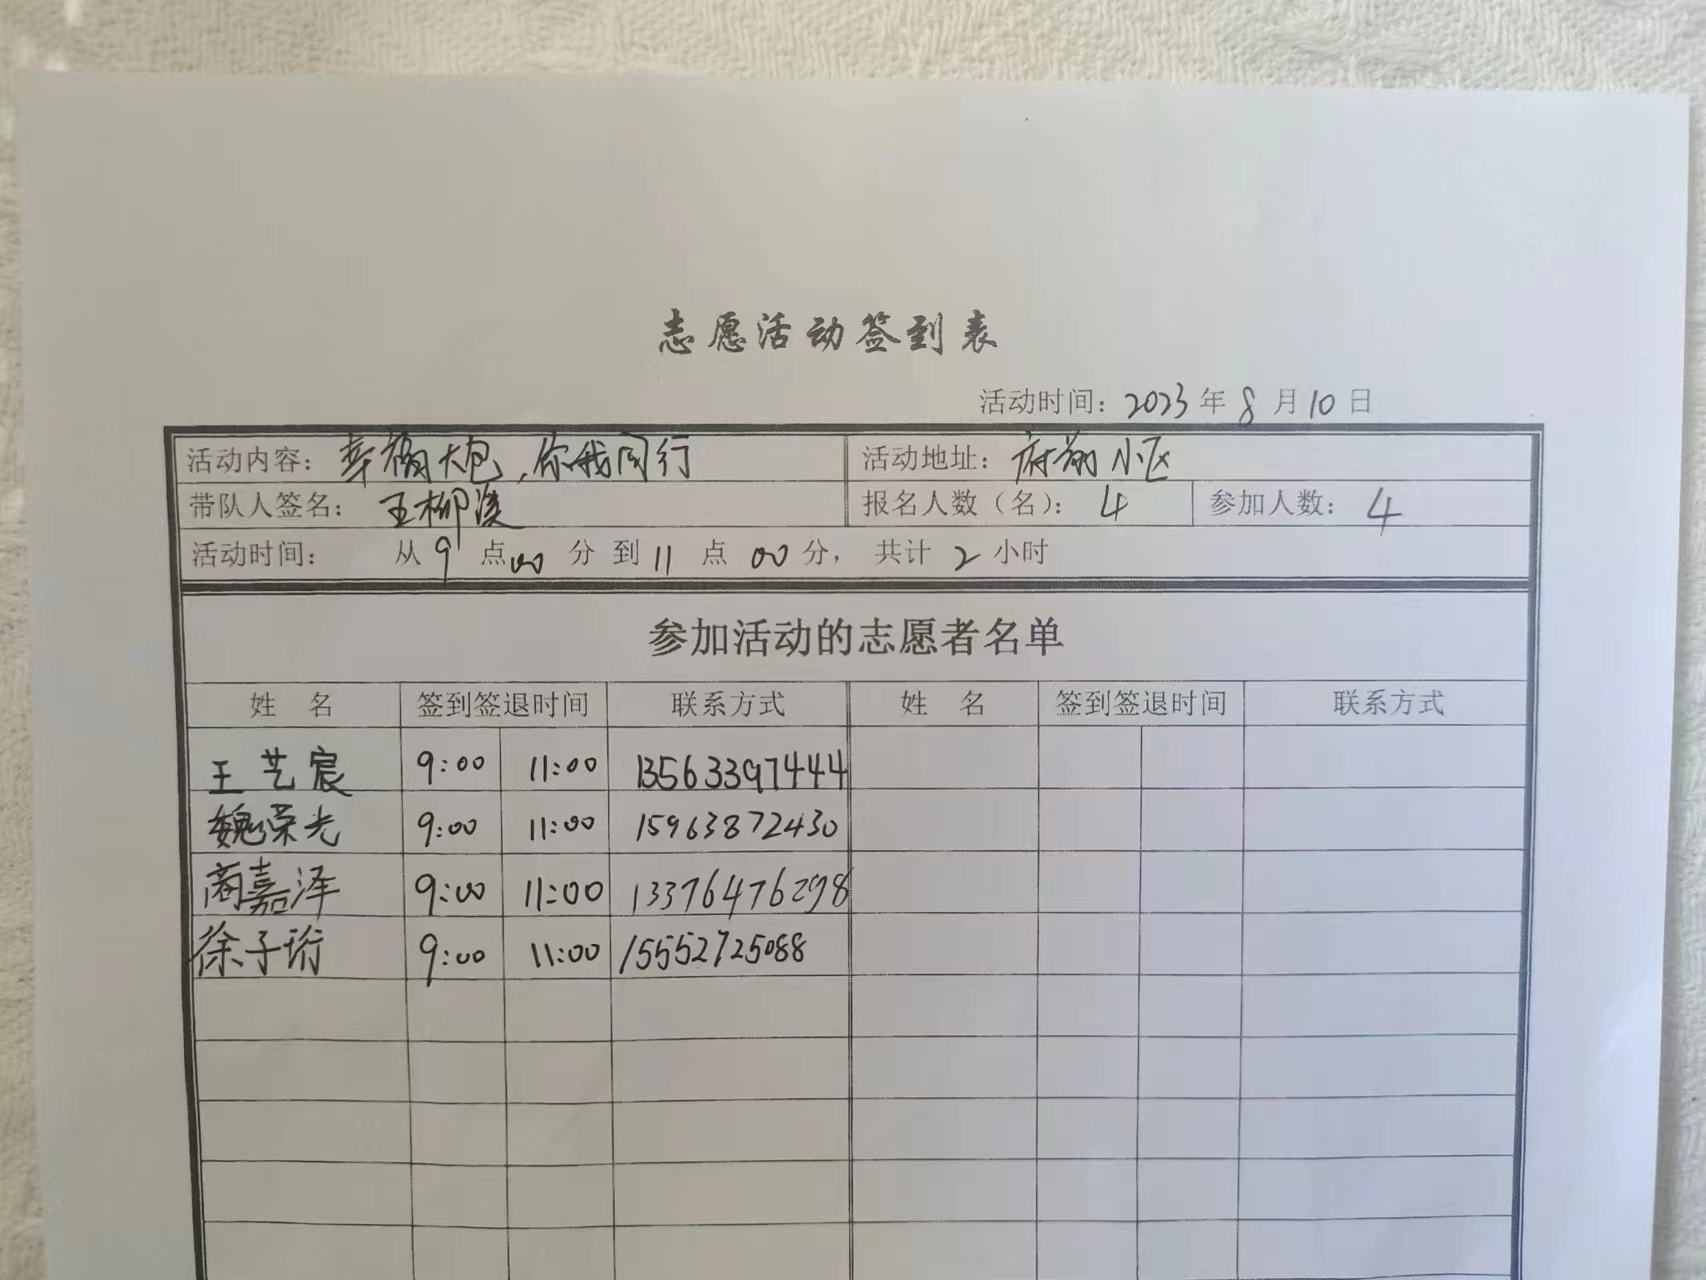 志愿活动签到表
活动时间：2023年8月10日
活动内容：幸福大包，你我同行 活动地址：府前小区
带队人签名：王柳溪 报名人数（名）：4 参加人数：4
活动时间： 从9点00分到11点00分，共计2小时
参加活动的志愿者名单
姓 名 签到签退时间 联系方式 姓 名 签到签退时间 联系方式
王艺宸 9:00 11:00 13563397444
魏荣光 9:00 11:00 15963872430
商嘉泽 9:00 11:00 13376476298
徐子珩 9:00 11:00 15552725088